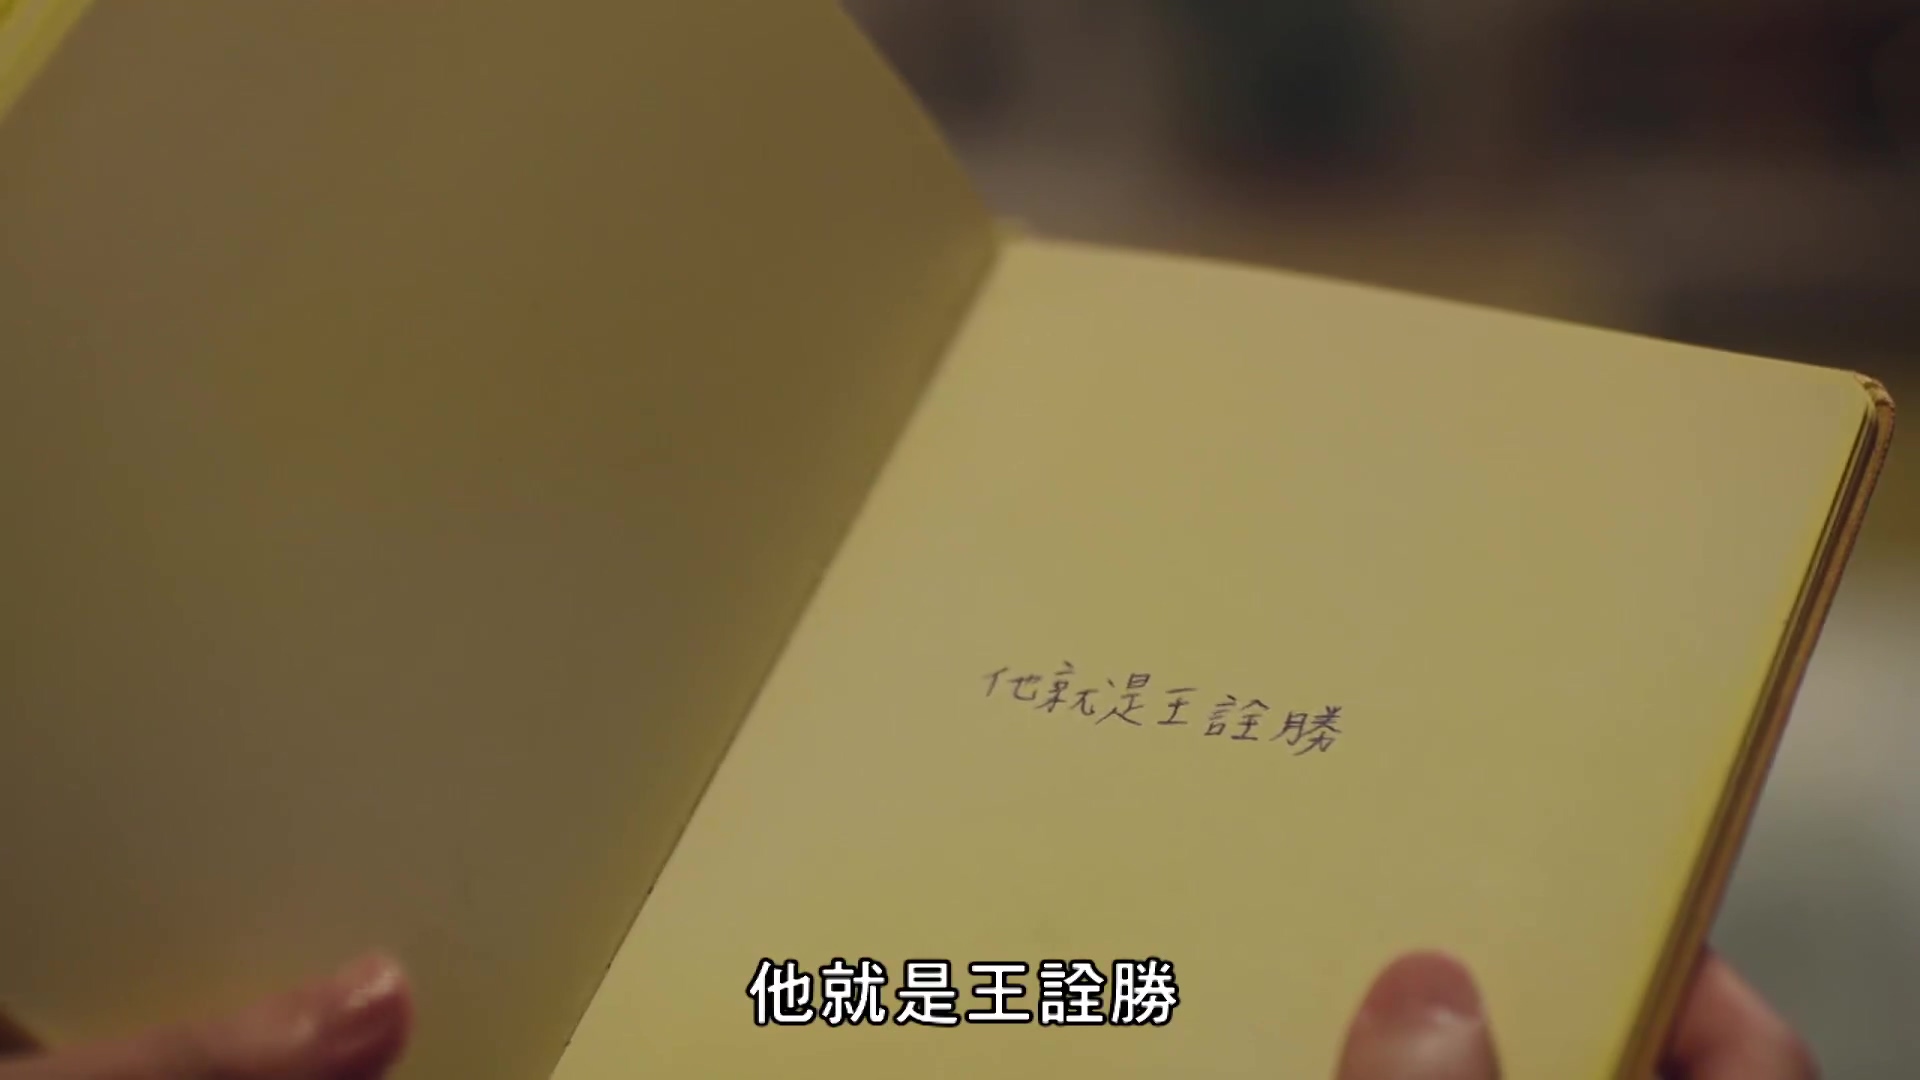 他就是王詮勝
他就是王詮勝